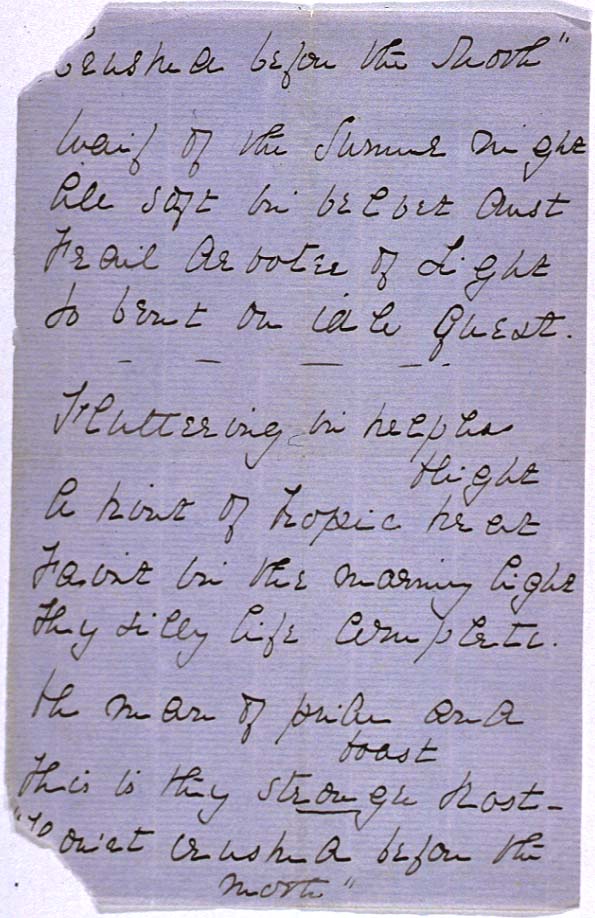 Crushed before the Moth"
Waif of the Summer night
soft in velvet dust
Frail devotee of Light
So bent on idle quest.
Fluttering in helpless
plight
A hint of tropic heat
Faint in the morning light
Thy silly life complete.
Oh man of pride and
boast
This is thy host -
crushed before the
Moth"